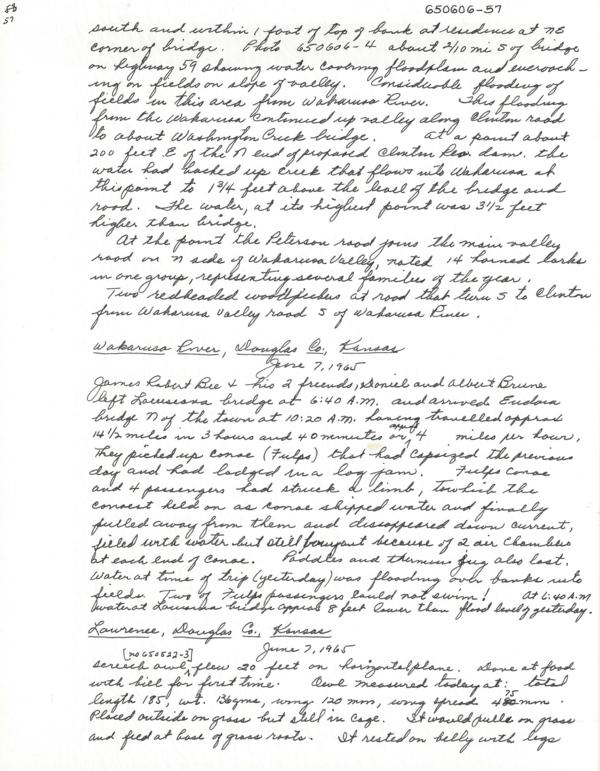 58
57
650606-57
south and within 1 foot of top of bank at residence at NE
corner of bridge. Photo 650606-4 about 2/10 mi S of bridge
on highway 59 showing water covering floodplain and encroach-
ing on fields on slope of valley. Considerable flooding of
fields in this area from Wakarusa River. This flooding
from the Wakarusa continued up valley along Clinton road
to about Washington Creek bridge. At a point about
200 feet E of the N end of proposed Clinton Res. dam. the
water had backed up creek that flows into Wakarusa at
this point to 1 3/4 feet above the level of the bridge and
road. The water, at its highest point was 3 1/2 feet
higher than bridge.
At the point the Peterson road joins the main valley
road on N side of Wakarusa Valley, noted 14 horned larks
in one group, representing several families of the year.
Two redheaded woodpeckers at road that turns S to Clinton
from Wakarusa Valley road S of Wakarusa River.
Wakarusa River, Douglas Co., Kansas
June 7, 1965
James Robert Bee & his 2 friends, Daniel and Albert Brune
left Louisiana bridge at 6:40 A.M. and arrived Eudora
bridge N of the town at 10:20 A.M. having travelled approx
14 1/2 miles in 3 hours and 40 minutes or approx 4 miles per hour.
They picked up canoe (Fulps) that had capsized the previous
day and had lodged in a log jam. Fulps canoe
and 4 passengers had struck a limb, to which the
canoeist held on as canoe shipped water and finally
pulled away from them and dissappeared down current,
filled with water but still bouyant because of 2 air chambers
at each end of canoe. Paddles and thermus jug also lost.
Water at time of trip (yesterday) was flooding over banks into
fields. Two of Fulps passengers could not swim! At 6:40 A.M
water at Louisiana bridge approx 8 feet lower than flood level of yesterday.
Lawrence, Douglas Co., Kansas
June 7, 1965
[no 650522-3]
Screech owl flew 20 feet on horizontal plane. Dove at food
with bill for first time. Owl measured today at: total
length 185, wt. 136 gms, wing 120 mm, wing spread 475 mm.
Placed outside on grass but still in cage. It would pull on grass
and feed at base of grass roots. It rested on belly with legs